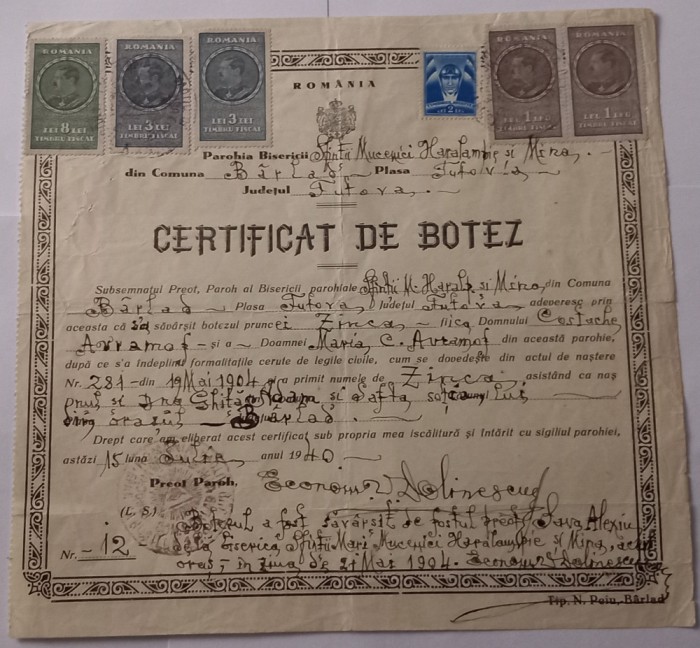 ROMANIA
LEI 8 LEI
TIMBRU FISCAL
ROMANIA
LEI 3 LEI
TIMBRU FISCAL
ROMANIA
LEI 3 LEI
TIMBRU FISCAL
ROMANIA
LEI 1 LEU
TIMBRU FISCAL
ROMANIA
LEI 1 LEU
TIMBRU FISCAL
ROMÂNIA
Parohia Bisericii Sfinții Mucenici Haralambie și Mina.
din Comuna Bârlad Plasa Tutova
Județul Tutova.
CERTIFICAT DE BOTEZ
Subsemnatul Preot, Paroh al Bisericii parohiale Sfinții M. Haralb. și Mina, din Comuna
Bârlad Plasa Tutova, Județul Tutova adeveresc prin
aceasta că sa săvârșit botezul pruncei Zinca, fiica Domnului Costache
Avramof și a Doamnei Maria C. Avramof din această parohie,
după ce s'a îndeplinit formalitațile cerute de legile civile, cum se dovedește din actul de naștere
Nr. 281 din 19 Mai 1904 și a primit numele de Zinca, asistând ca naș
pe și soția lui,
din orașul Bârlad.
Drept care am eliberat acest certificat sub propria mea iscălitură și întărit cu sigiliul parohiei,
astăzi 15 luna Iulie anul 1940
Preot Paroh, Econom V. Dolinescu
(L. S.) Botezul a fost săvârșit de fostul preot Sava Alexiu
Nr. 12 dela biserica Sfinții Mari Mucenici Haralambie și Mina, acest
oraș, în ziua de 21 Mai 1904. Econom V. Dolinescu
Tip. N. Peiu, Bârlad